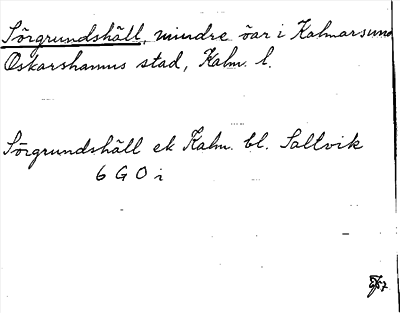 Sörgrundshäll, mindre öar i Kalmarsund
Oskarshamns stad, Kalm. l.
Sörgrundshäll ek Kalm. bl. Saltvik
6 G O i